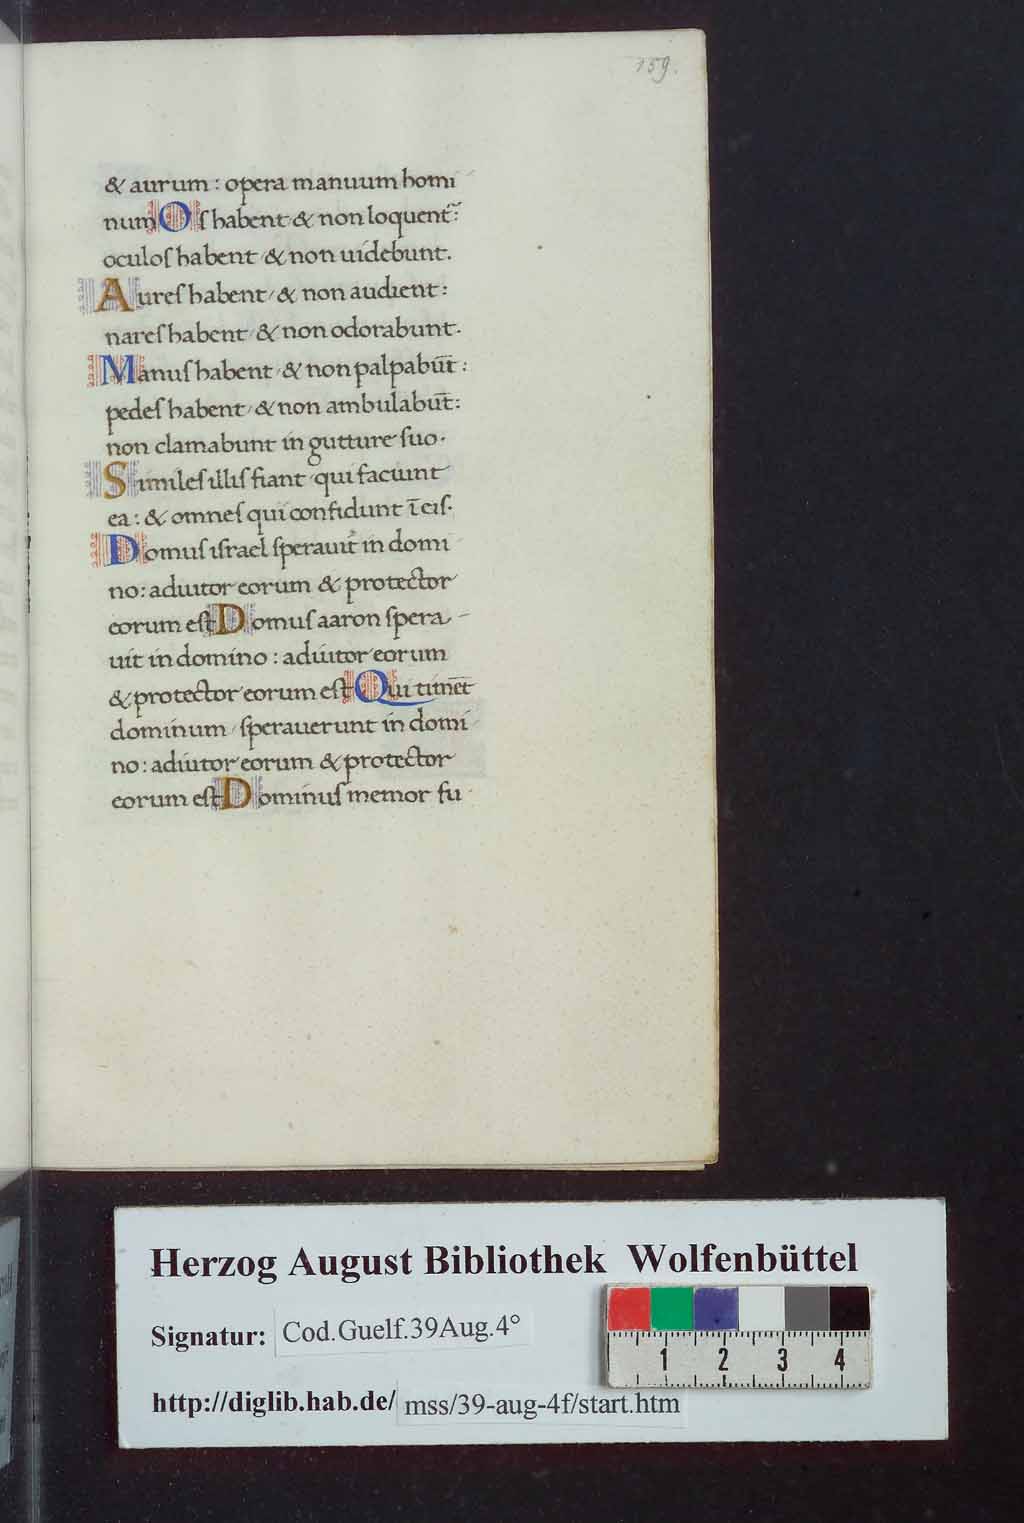 159.
& aurum : opera manuum homi
num Oſ habent & non loquent̃ :
oculoſ habent & non uidebunt.
Aureſ habent / & non audient :
nareſ habent / & non odorabunt.
Manuſ habent / & non palpabūt :
pedeſ habent / & non ambulabūt :
non clamabunt in gutture ſuo.
Simileſ illiſ fiant qui faciunt
ea : & omneſ qui confidunt ī eiſ.
Domuſ iſrael ſperauit in domi
no : adiutor eorum & protector
eorum eſt Domuſ aaron ſpera -
uit in domino : adiutor eorum
& protector eorum eſt Qui timēt
dominum / ſperauerunt in domi
no : adiutor eorum & protector
eorum eſt Dominuſ memor fu
Herzog August Bibliothek Wolfenbüttel
Signatur: Cod.Guelf.39Aug.4°
http://diglib.hab.de/ mss/39-aug-4f/start.htm
1 2 3 4